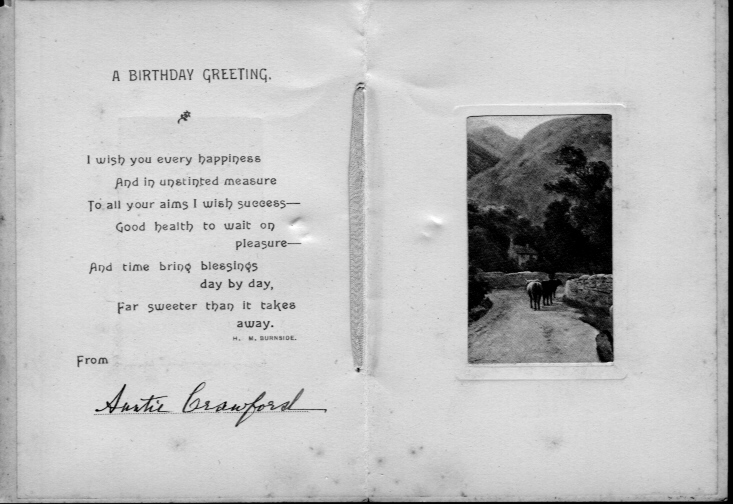 A BIRTHDAY GREETING.
I wish you every happiness
And in unstinted measure
To all your aims I wish success—
Good health to wait on
pleasure—
And time bring blessings
day by day,
Far sweeter than it takes
away.
H. M. BURNSIDE.
From
Auntie Crawford